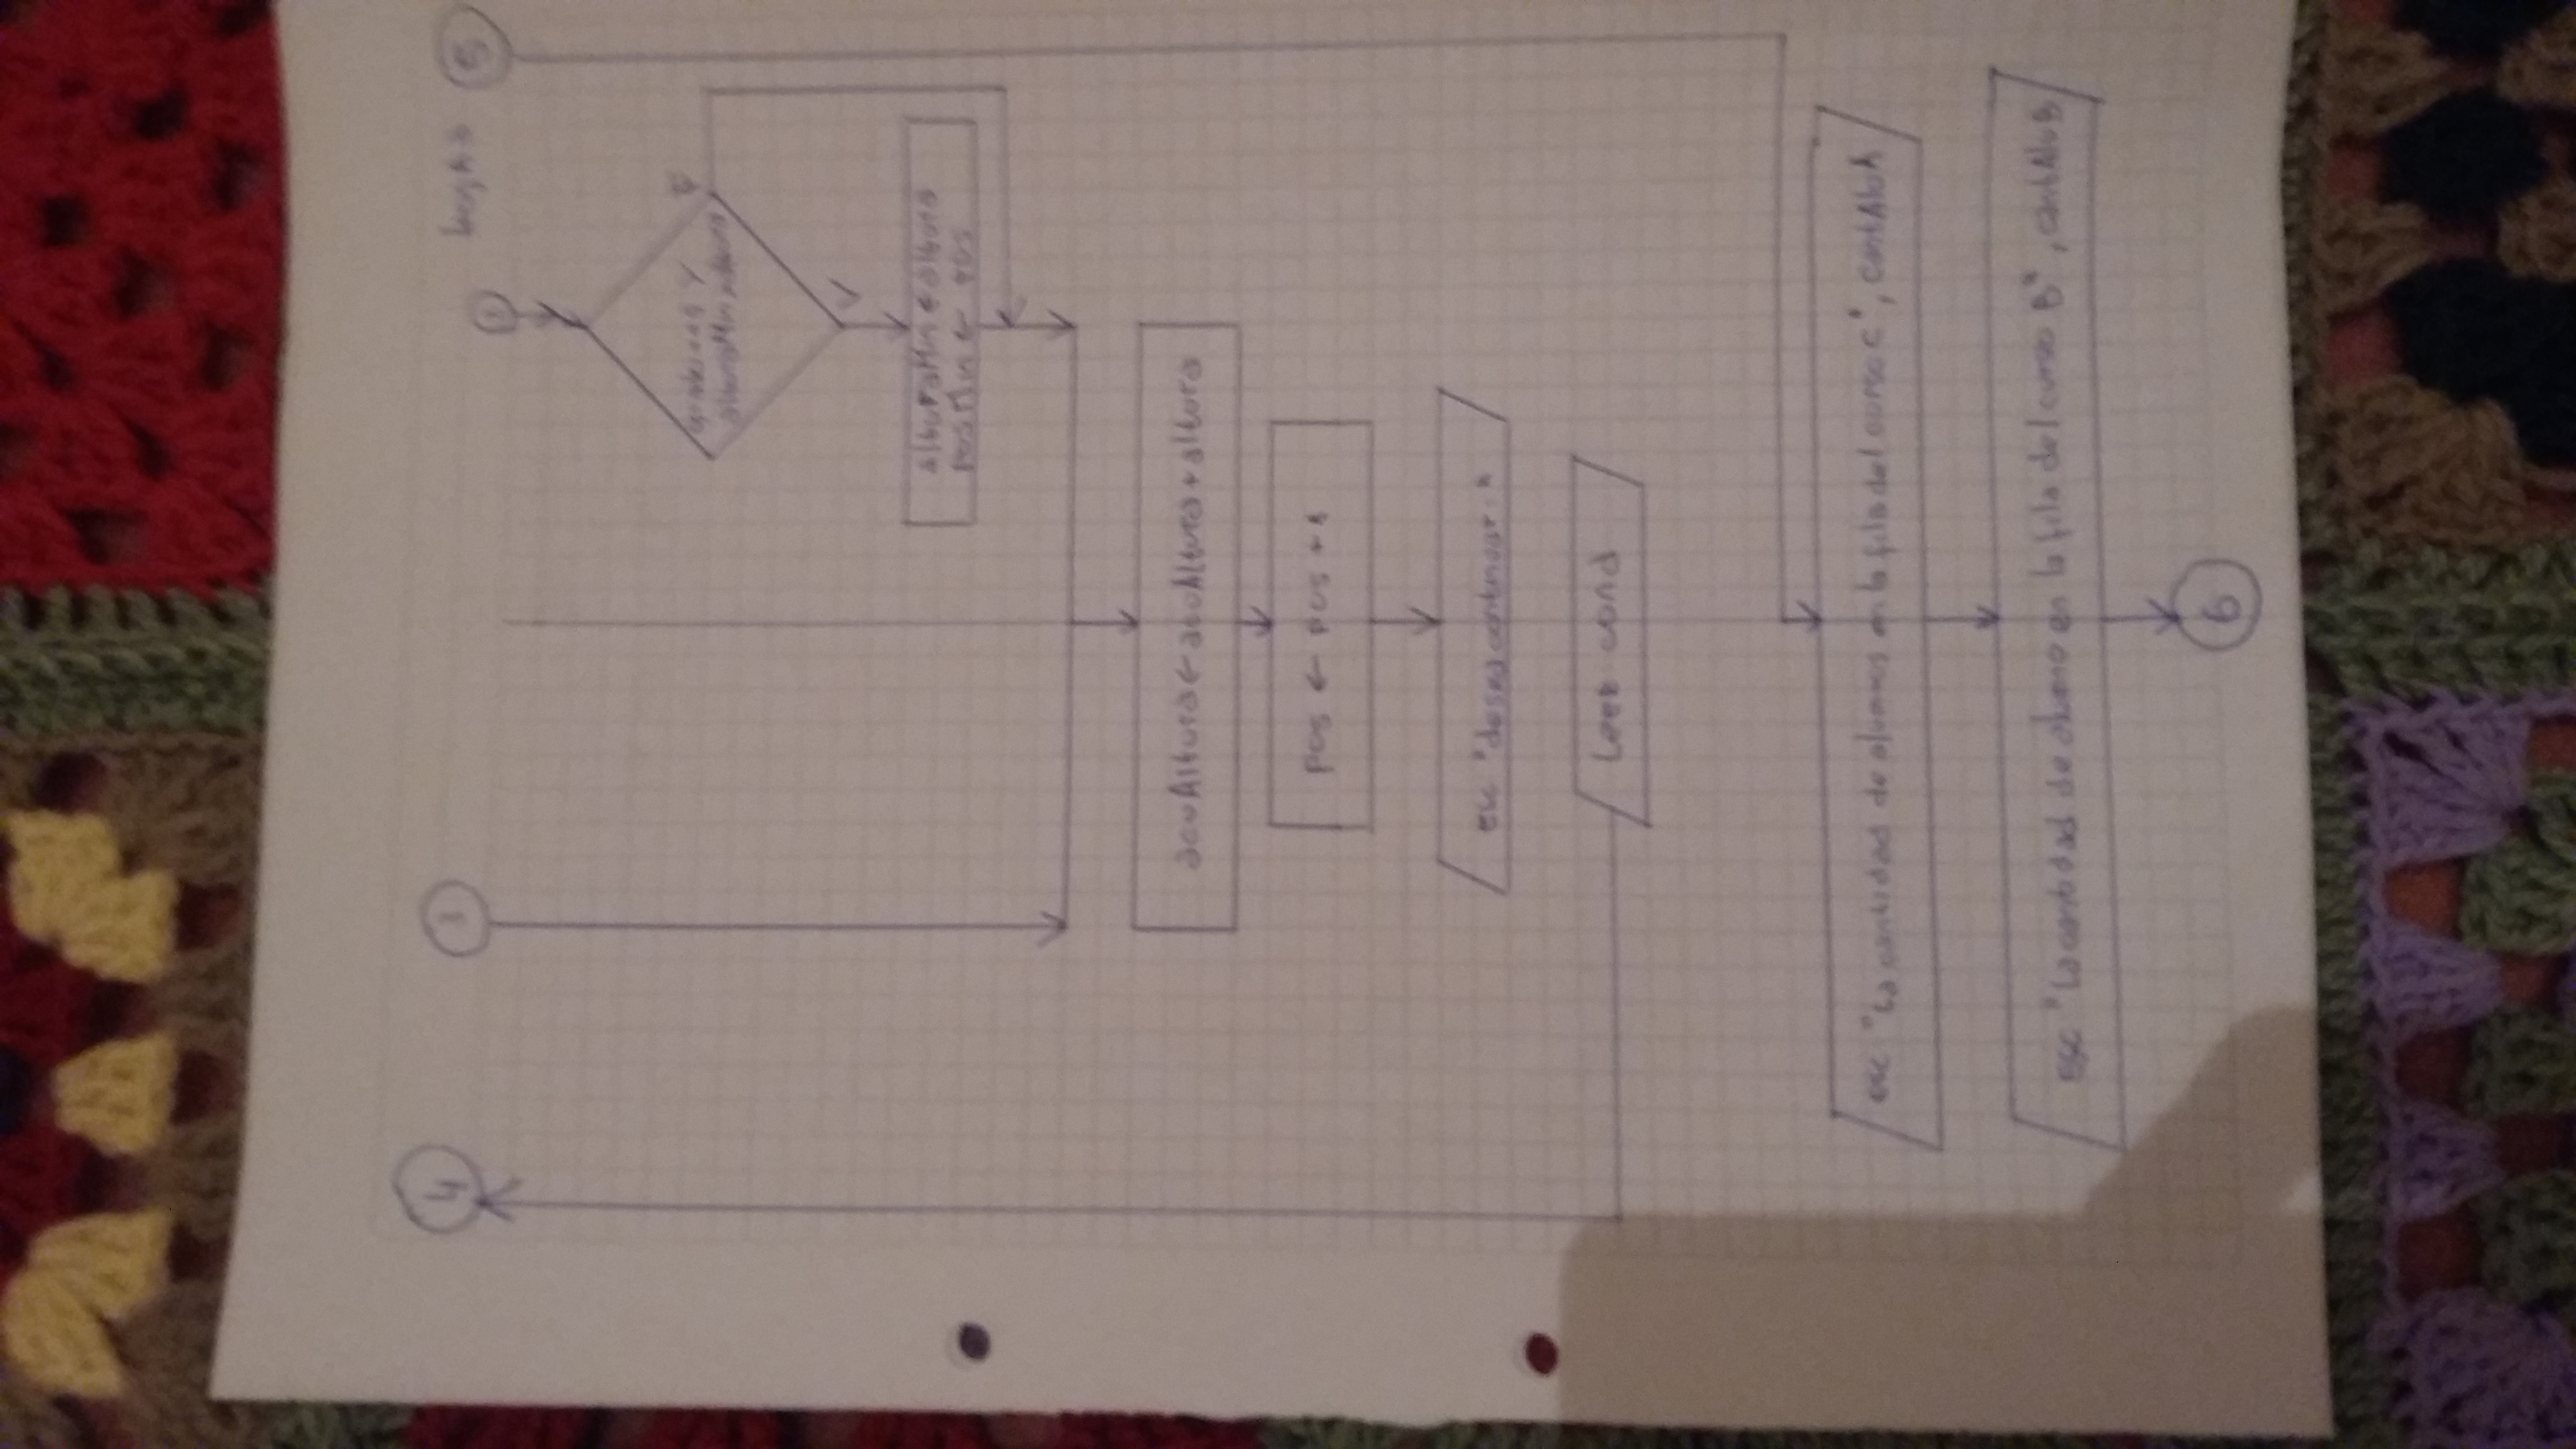 4
5
F
alturaMin altura
V
alturaMin ← altura
posMin ← pos
acuAltura ← acuAltura + altura
pos ← pos + 1
Esc "desea continuar."
Leer cond
esc "La cantidad de alumnos en la fila del curso C", cantAluA
Esc "La cantidad de alumno en la fila del curso B", cantAluB
6